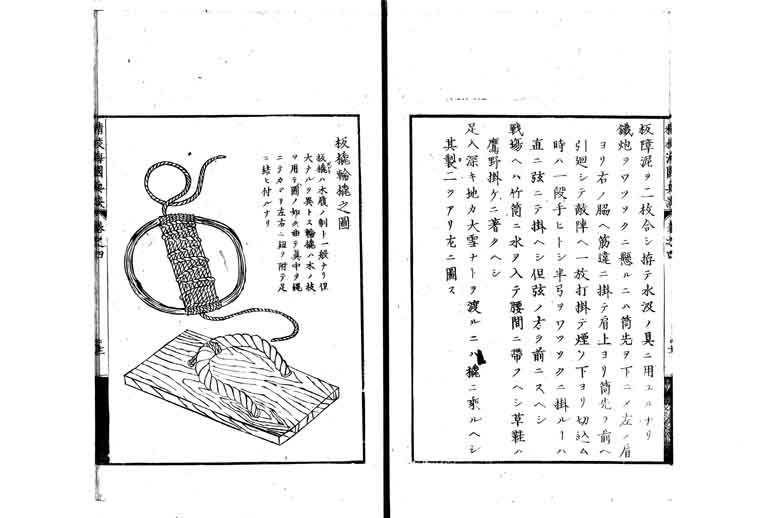 板障泥ヲ二枚合シ拵テ水汲ノ具ニ用ユルナリ
鐵炮ヲワツソクニ懸ルニハ筒先ヲ下ニメ左ノ肩
ヨリ右ノ脇ヘ筋違ニ掛テ肩上ヨリ筒先ヲ前ヘ
引廻シテ敵陣ヘ一放打掛テ煙ノ下ヨリ切込ム
時ハ一段手ヒトシ半弓ヲワツソクニ掛ルーハ
直ニ弦ニテ掛ヘシ但弦ノ方ヲ前ニスヘシ
戦場ヘハ竹筒ニ水ヲ入テ腰間ニ帶フヘシ草鞋ハ
鷹野掛ケニ著クヘシ
足入深キ地カ大雪ナトヲ渡ルニハ橇ニ乘ルヘシ
其製二ツアリ左ニ圖ス
板橇輪橇之圖
板橇ハ水履ノ制ト一般ナリ但
大ナルヲ異トス輪橇ハ木ノ枝
ヲ用テ圖ノ如ク曲テ眞中ヲ縄
ニテカヾリ左右ニ紐ヲ附テ足
ニ結ヒ付ルナリ